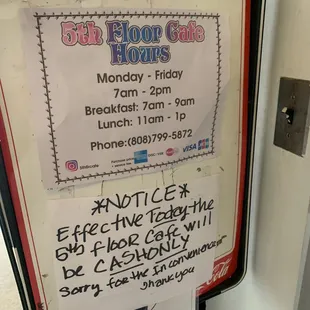 5th Floor Cafe
Hours
Monday - Friday
7am - 2pm
Breakfast: 7am - 9am
Lunch: 11am - 1p
Phone:(808)799-5872
VISA
*NOTICE*
Effective Today the
5th floor Cafe will
be CASHONLY
Sorry for the Inconvenience
Thank you